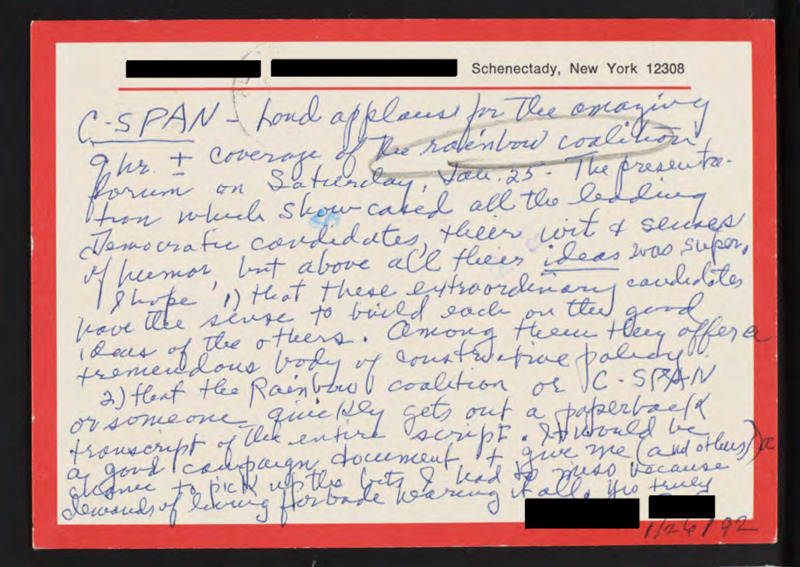 Schenectady, New York 12308
C-SPAN - Loud applause for the amazing
9 hr. ± coverage of the rainbow coalition
forum on Saturday, Jan. 25. The presenta-
tion which showcased all the leading
Democratic candidates, their wit & senses
of humor, but above all their ideas was super.
I hope 1) that these extraordinary candidates
have the sense to build each on the good
ideas of the others. Among them they offer a
tremendous body of constructive policy.
2) that the Rainbow coalition or C-SPAN
or someone quickly gets out a paperback
transcript of the entire script. It would be
a good campaign document & give me (and others) a
chance to pick up the bits I had to miss because
demands of living forbade hearing it all. Yrs truly
1/26/92